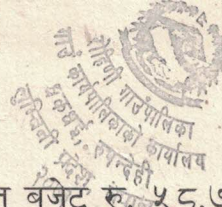 रोहिणी गाउँपालिका
गाउँ कार्यपालिकाको कार्यालय
रुपन्देही
लुम्बिनी प्रदेश
बजेट रु. ५८.७